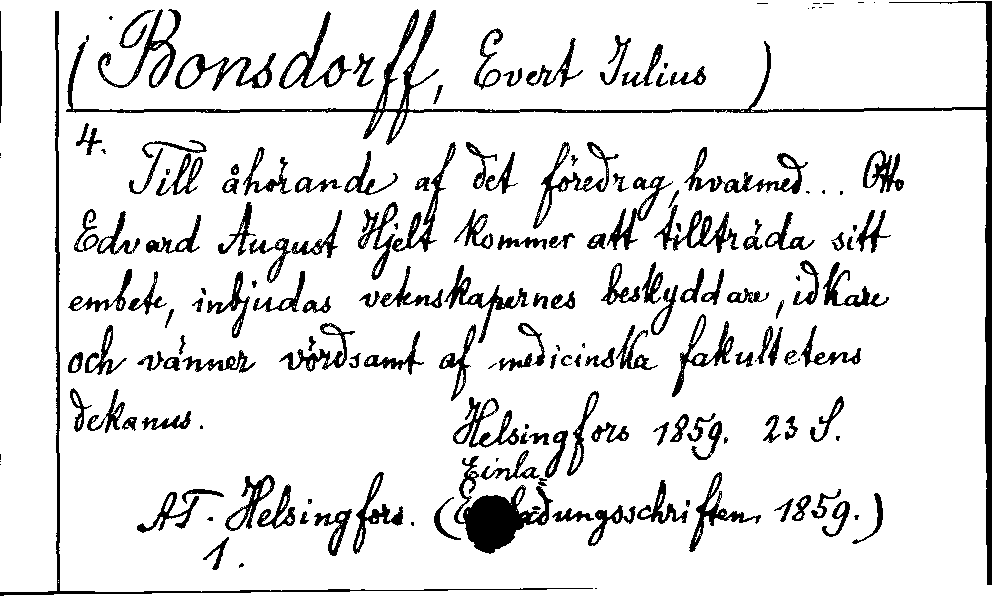 (Bonsdorff, Evert Julius )
4.
Till åhörande af det föredrag, hvarmed... Otto
Edvard August Hjelt kommer att tillträda sitt
embete, inbjudas vetenskapernes beskyddare, idkare
och vänner vördsamt af medicinska fakultetens
dekanus.
Helsingfors 1859. 23 S.
Einla=
AT. Helsingfors. (Einladungsschriften, 1859.)
1.